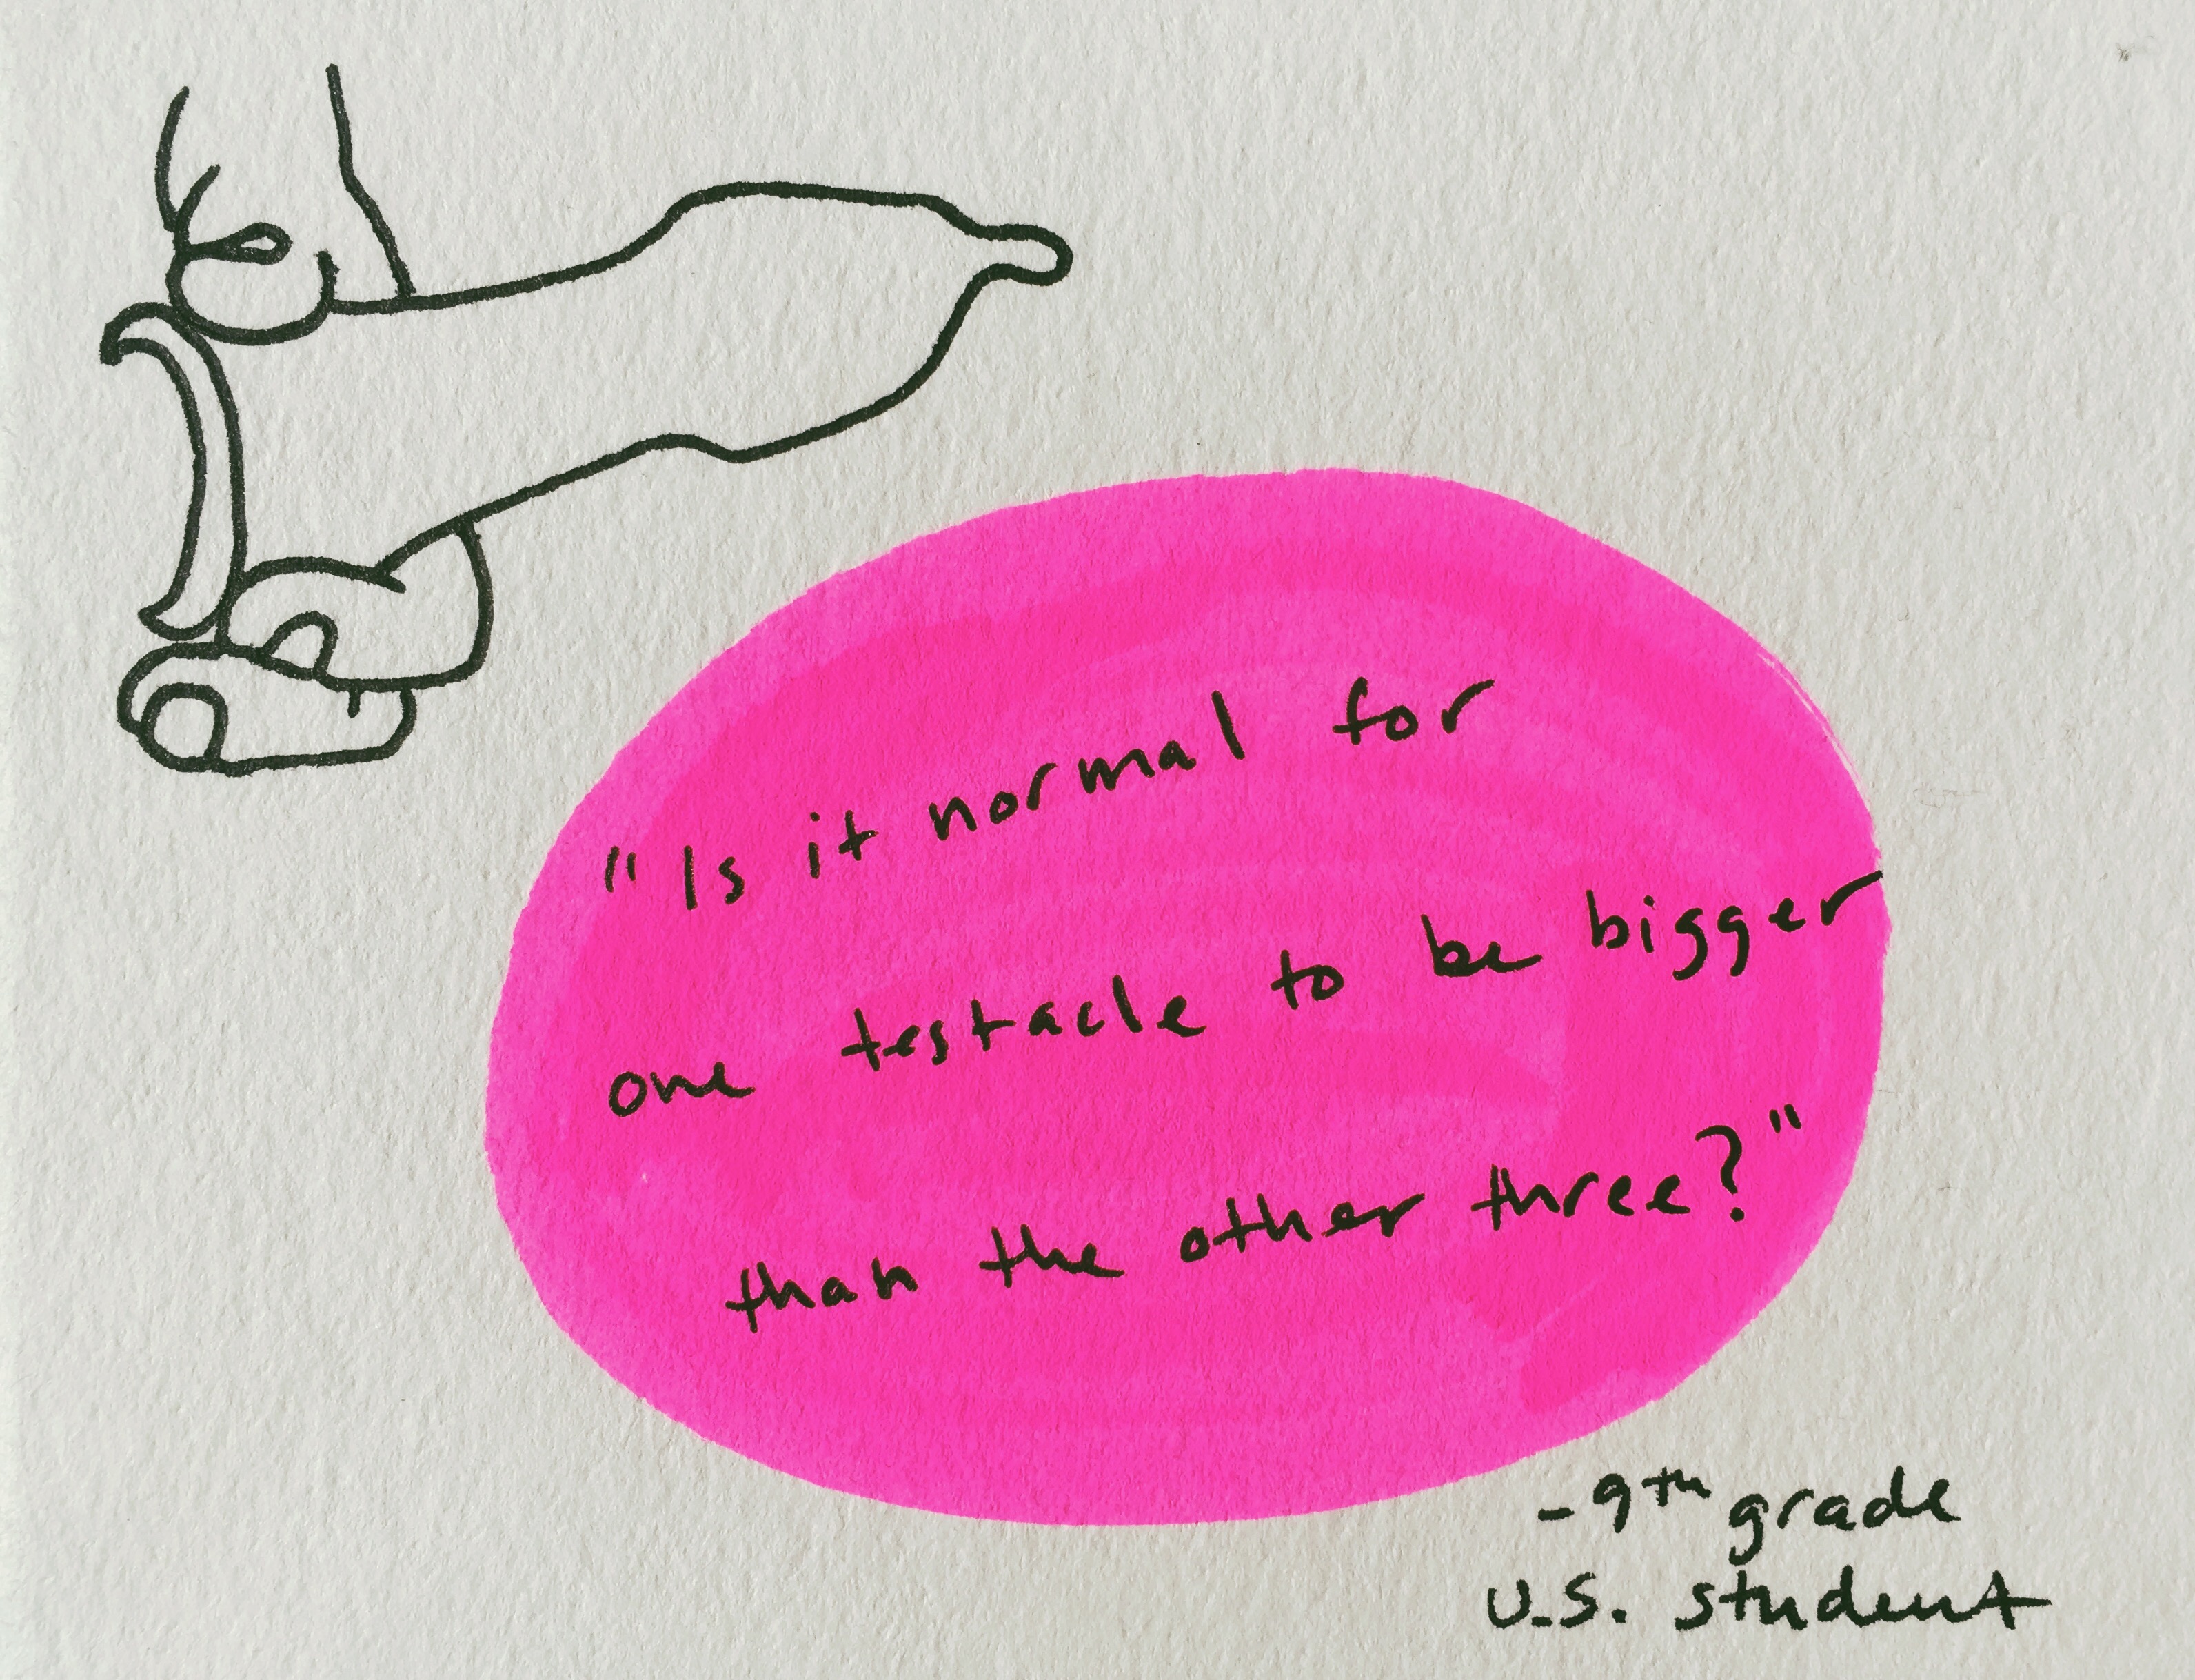 "Is it normal for
one testacle to be bigger
than the other three?"
-9th grade
U.S. student